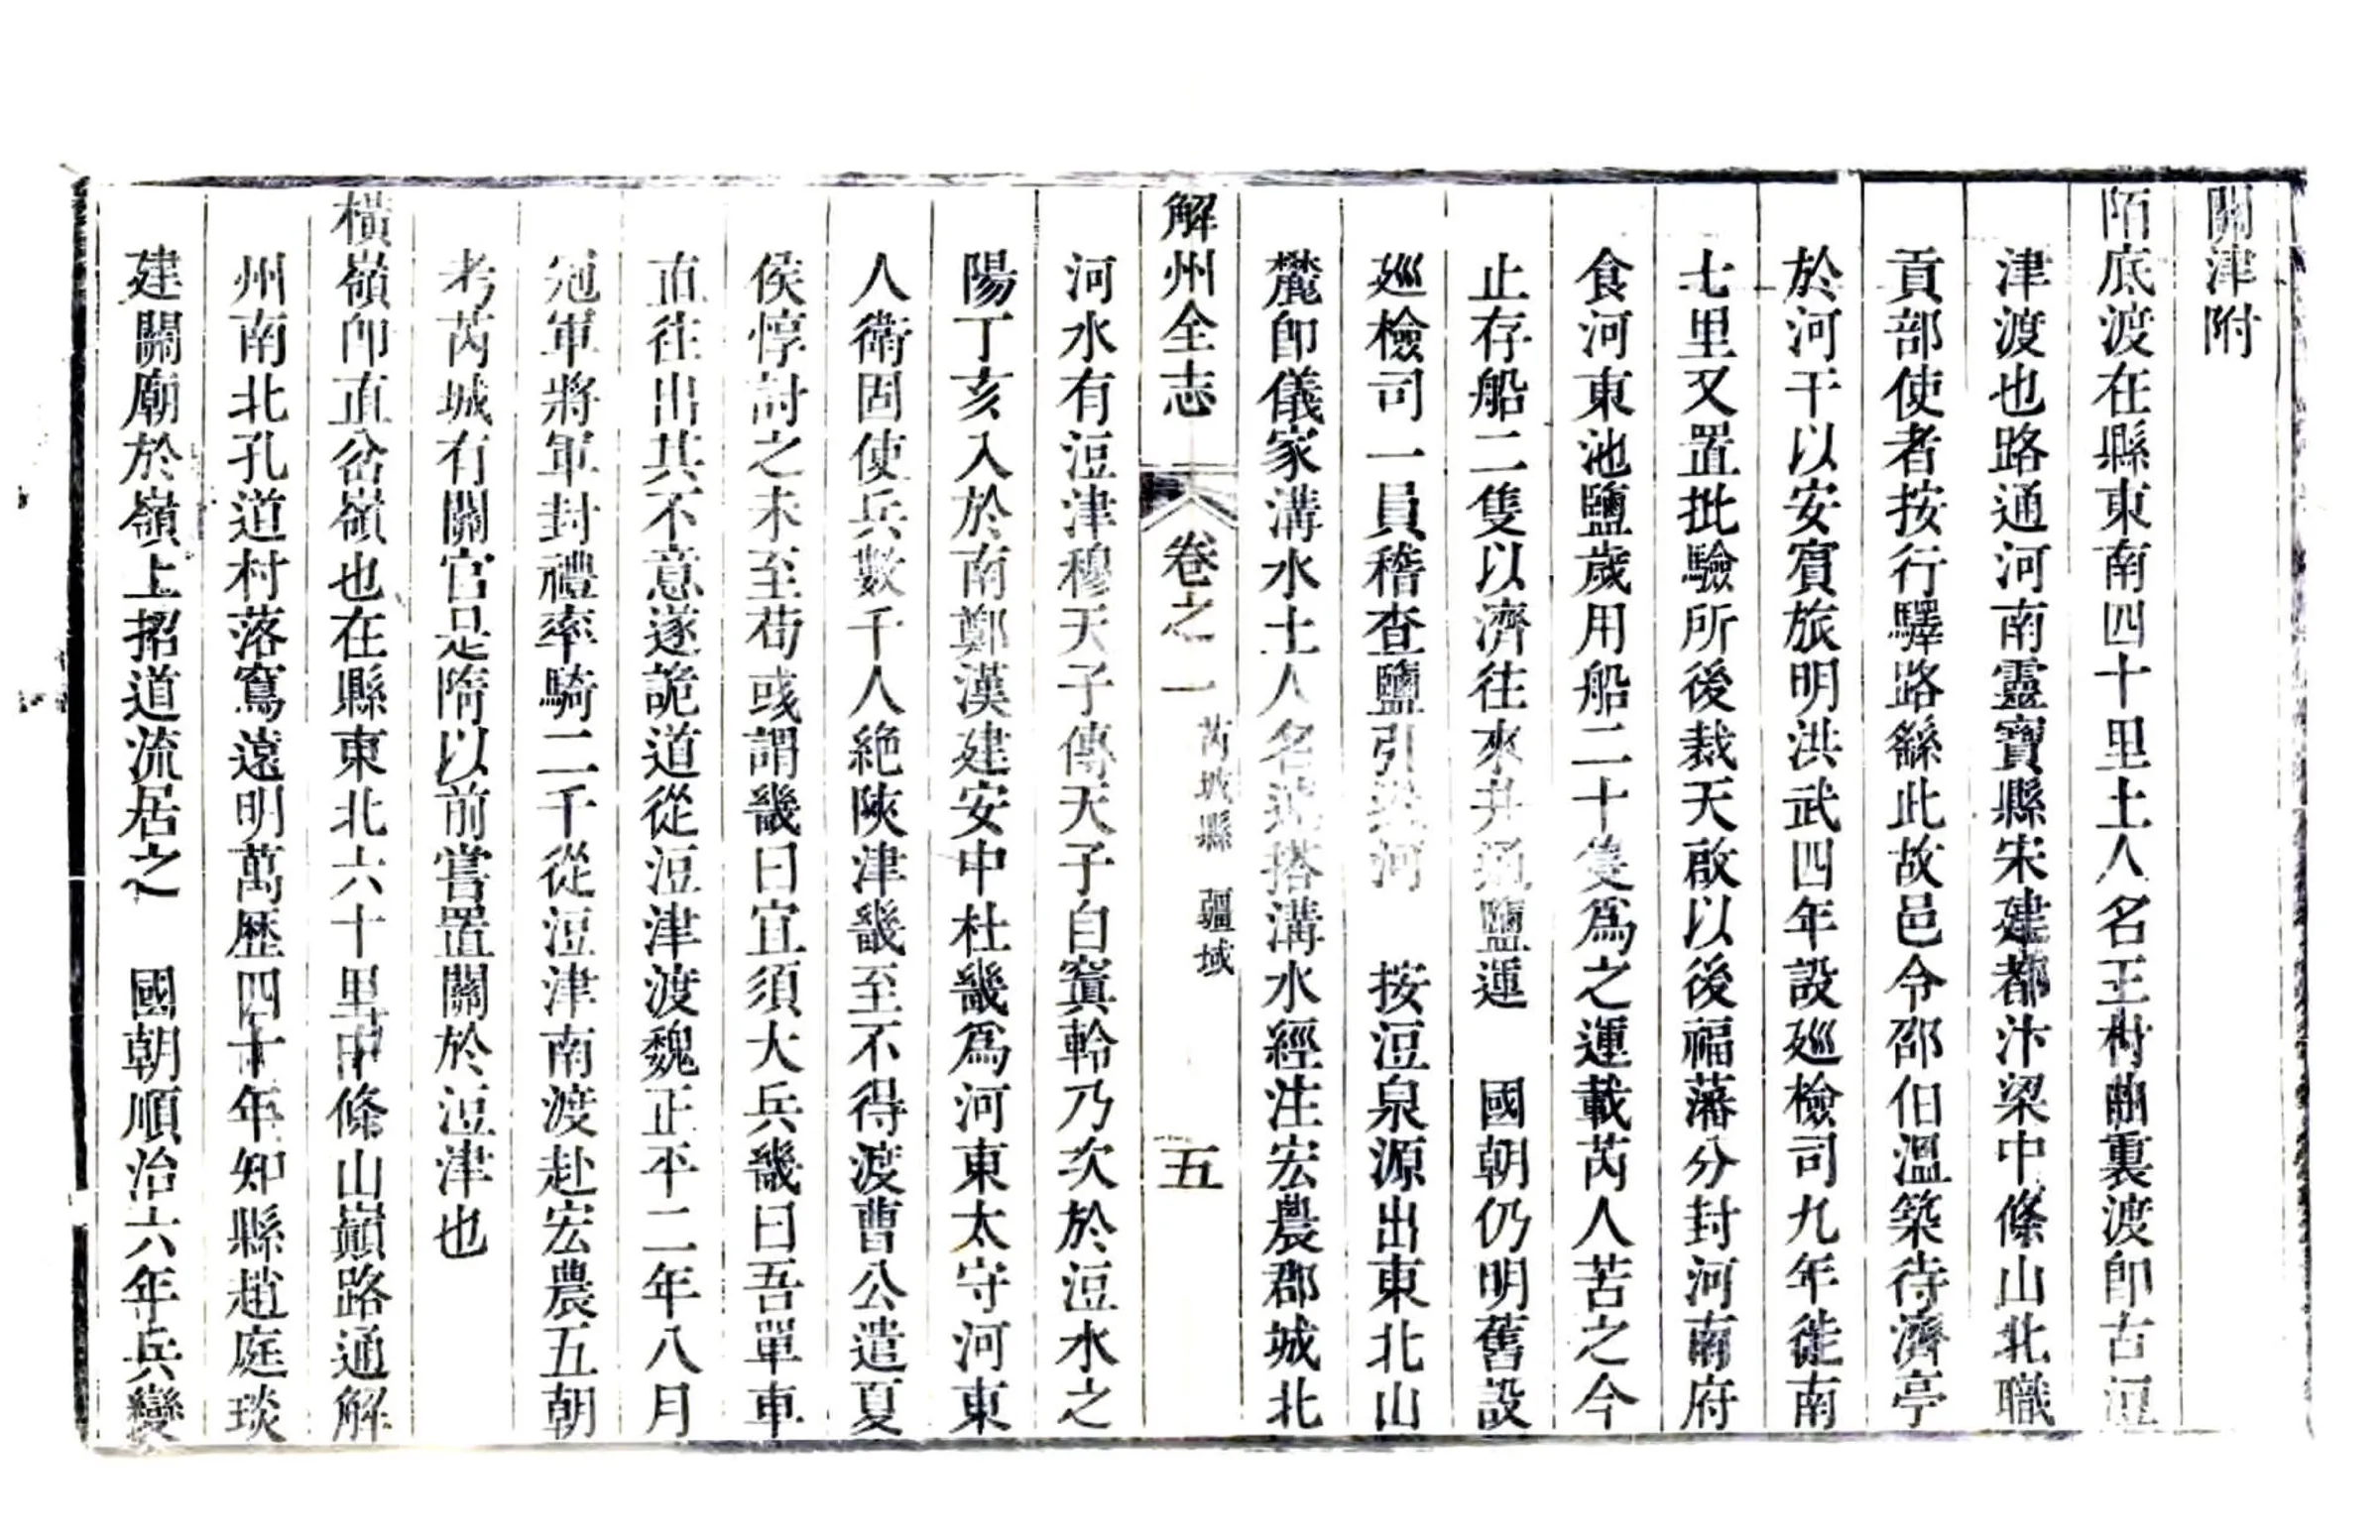 關津附
陌底渡在縣東南四十里土人名王村曲裏渡即古浢
津渡也路通河南靈寶縣宋建都汴梁中條山北職
貢部使者按行驛路繇此故邑令邵伯溫築待濟亭
於河干以安賓旅明洪武四年設廵檢司九年徙南
七里又置批驗所後裁天啟以後福藩分封河南府
食河東池鹽歲用船二十隻爲之運載芮人苦之今
止存船二隻以濟往來并通鹽運 國朝仍明舊設
廵檢司一員稽查鹽引 河 按浢泉源出東北山
麓即儀家溝水土人名 搭溝水經注宏農郡城北
解州全志 卷之一 芮城縣 疆域 五
河水有浢津穆天子傳天子自窴軨乃次於浢水之
陽丁亥入於南鄭漢建安中杜畿爲河東太守河東
人衛固使兵數千人絶陜津畿至不得渡曹公遣夏
侯惇討之未至荀彧謂畿曰宜須大兵畿曰吾單車
直往出其不意遂詭道從浢津渡魏正平二年八月
冠軍將軍封禮率騎二千從浢津南渡赴宏農五朝
考芮城有關官是隋以前嘗置關於浢津也
橫嶺即直岔嶺也在縣東北六十里中條山巔路通解
州南北孔道村落窵遠明萬歴四十年知縣趙庭琰
建關廟於嶺上招道流居之 國朝順治六年兵變